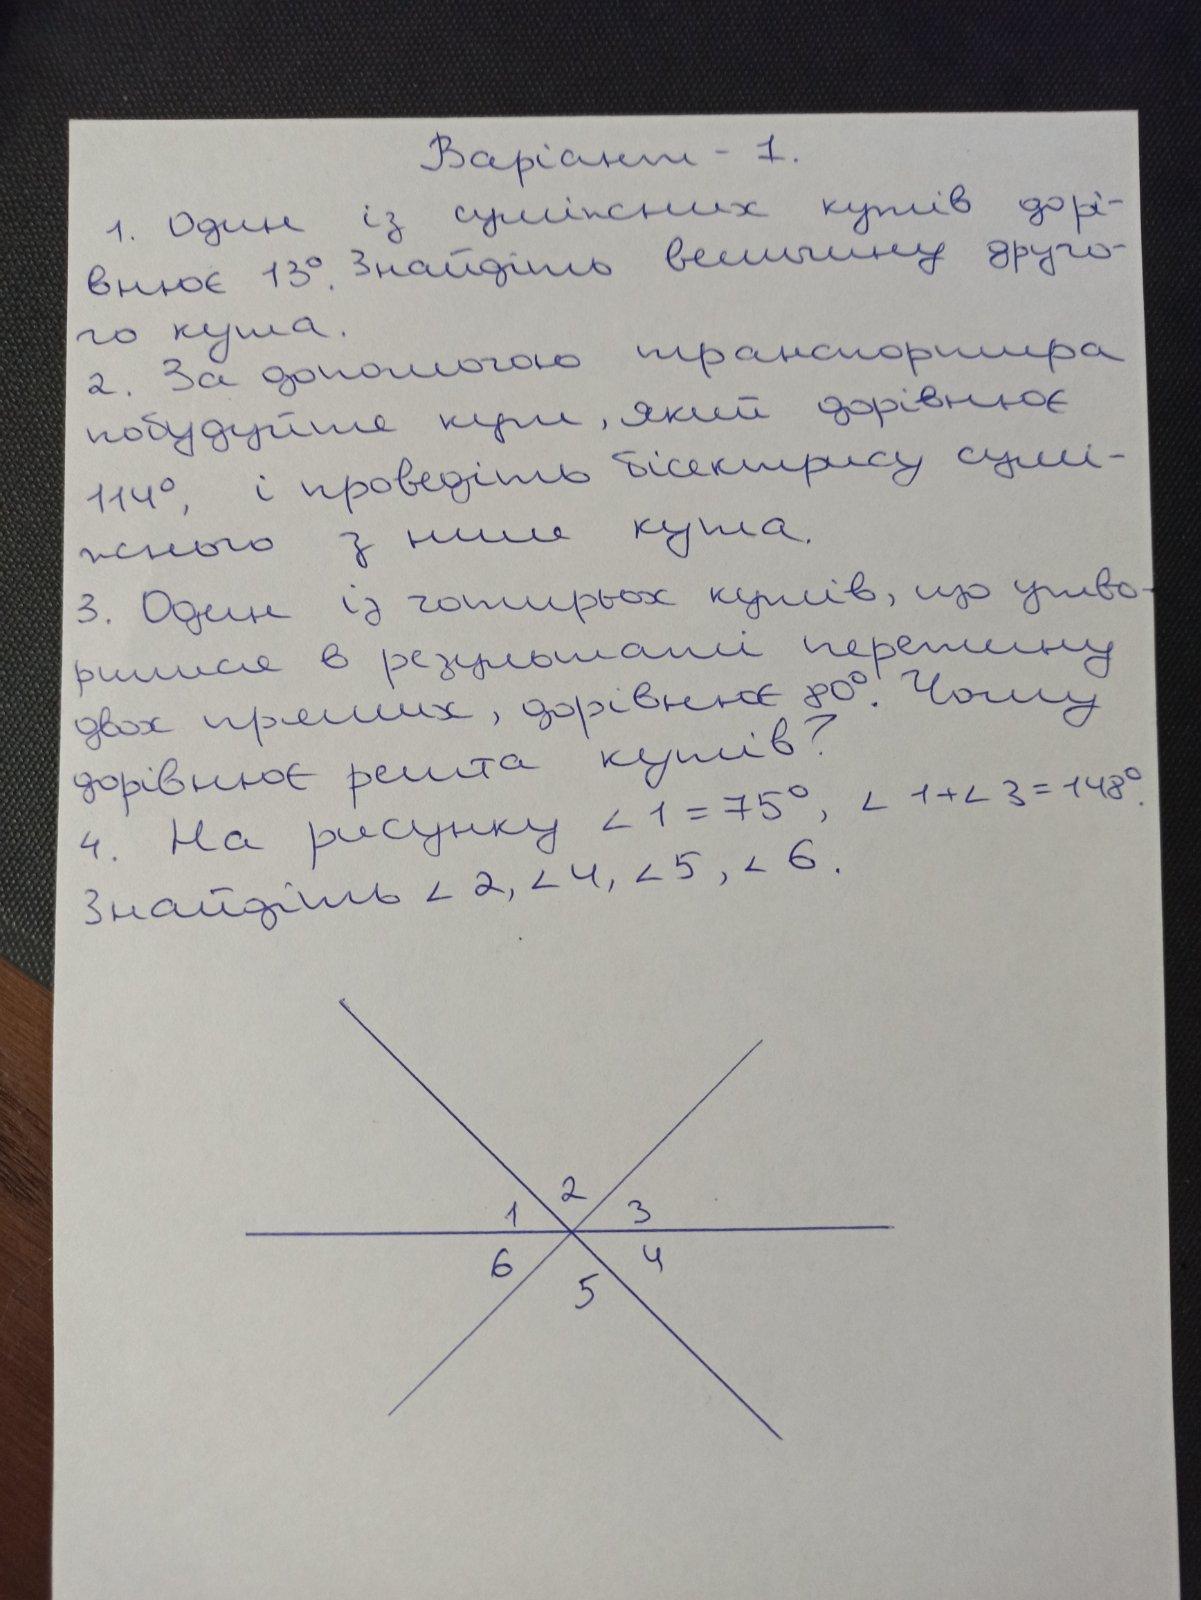 Варіант - 1.
1. Один із суміжних кутів дорі-
внює 13°. Знайдіть величину друго-
го кута.
2. За допомогою транспортира
побудуйте кут, який дорівнює
114°, і проведіть бісектрису сумі-
жного з ним кута.
3. Один із чотирьох кутів, що утво-
рилися в результаті перетину
двох прямих, дорівнює 80°. Чому
дорівнює решта кутів?
4. На рисунку ∠1 = 75°, ∠1+∠3=148°.
Знайдіть ∠2, ∠4, ∠5, ∠6.
2
1 3
6 4
5